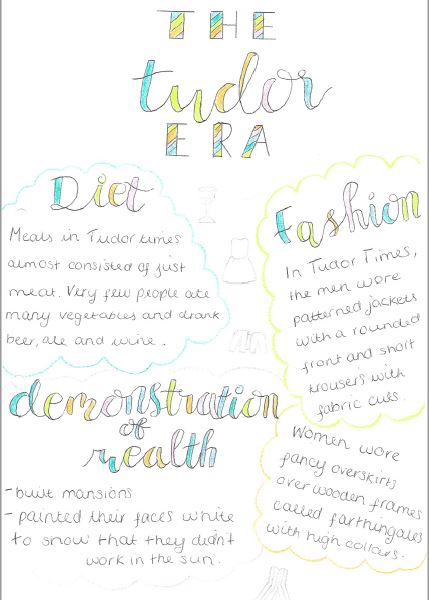 THE
tudor
ERA
Diet
Meals in Tudor times
almost consisted of just
meat. Very few people ate
many vegetables and drank
beer, ale and wine.
Fashion
In Tudor Times,
the men wore
patterned jackets
with a rounded
front and short
trousers with
fabric cuts.
Women wore
fancy overskirts
over wooden frames
called farthingales
with high collars.
demonstration
of
wealth
- built mansions
- painted their faces white
to show that they didn't
work in the sun.